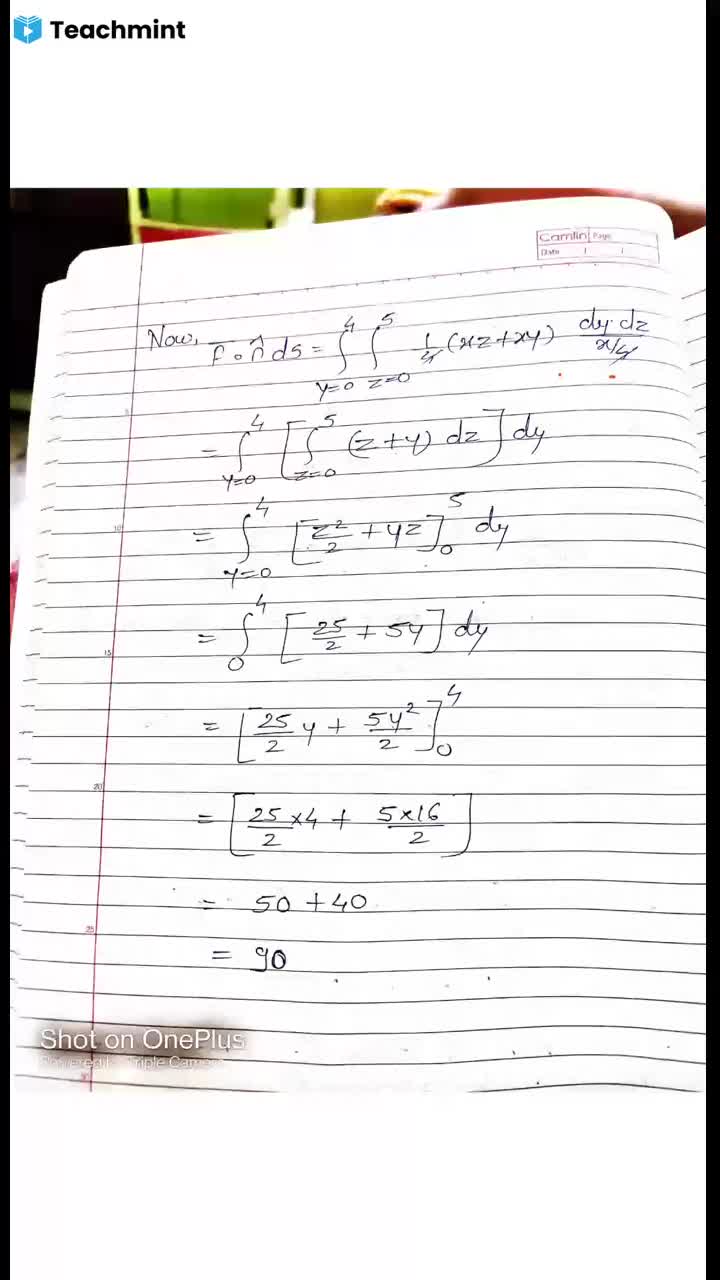 Teachmint
Camlin Page
Date / /
Now, F̄ ∘ n̂ ds = ∫_{y=0}^{4} ∫_{z=0}^{5} 1/4 (xz + xy) dy·dz / x/4
= ∫_{y=0}^{4} [∫_{z=0}^{5} (z + y) dz] dy
= ∫_{y=0}^{4} [z²/2 + yz]_0^5 dy
= ∫_0^4 [25/2 + 5y] dy
= [25/2 y + 5y²/2]_0^4
= [25/2 × 4 + 5×16/2]
= 50 + 40
= 90
5
10
15
20
25
30
Shot on OnePlus
Powered by Triple Camera